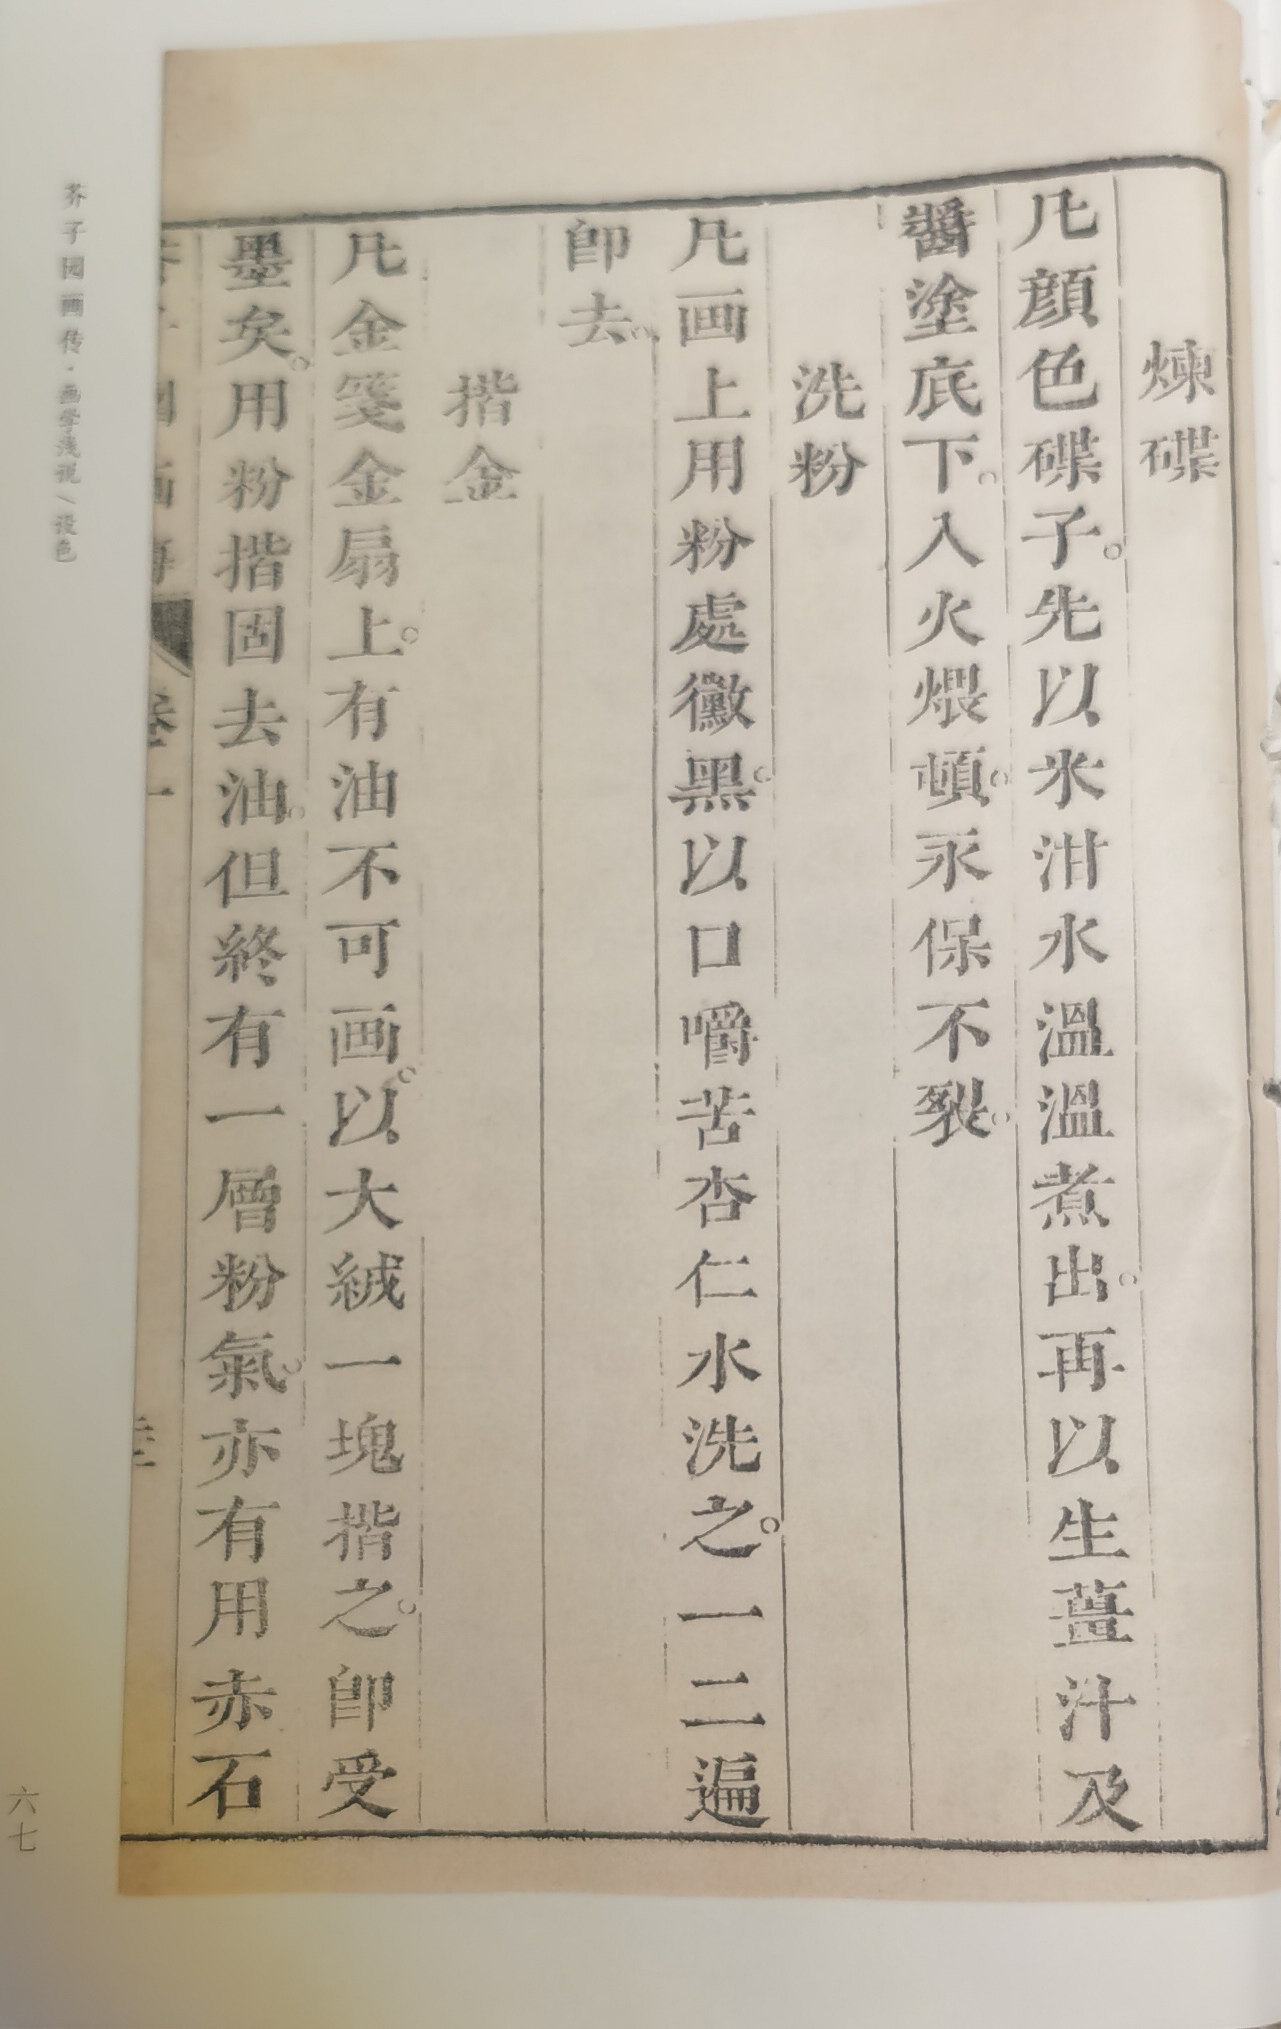 煉碟
凡顔色碟子。先以米泔水溫溫煮出。再以生薑汁及
醬塗底下。入火煨頓。永保不裂。
洗粉
凡画上用粉處黴黑。以口嚼苦杏仁水洗之。一二遍
卽去。
揩金
凡金箋金扇上。有油不可画。以大絨一塊揩之。卽受
墨矣。用粉揩固去油。但終有一層粉氣。亦有用赤石
卷一
芥子园画传·画学浅说/设色
六七